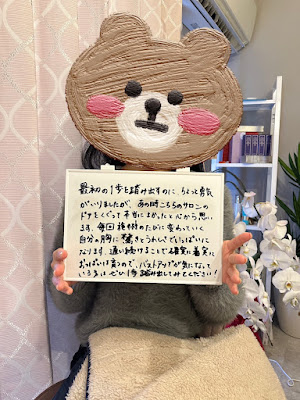 最初の1歩を踏み出すのに、ちょっと勇気
がいりましたが、あの時こちらのサロンの
ドアをくぐって本当によかったと心から思い
ます。毎回施術のたびに変わっていく
自分の胸に驚きとうれしさでいっぱいに
なります。通い続けることで確実に着実に
おっぱいは育つので、バストアップが気になって
いる方は、ぜひ1歩踏み出してみてください!